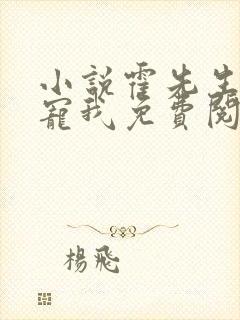 小說霍先生
寵我免費閱
楊飛